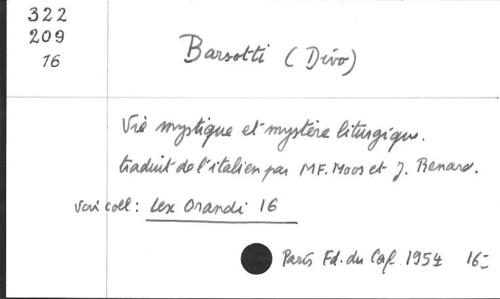 322
209
16
Barsotti (Divo)
Vie mystique et mystère liturgique.
traduit de l'italien par MF. Moos et J. Renard.
Voir coll: Lex Orandi 16
Paris Ed. du Cerf. 1954 16-